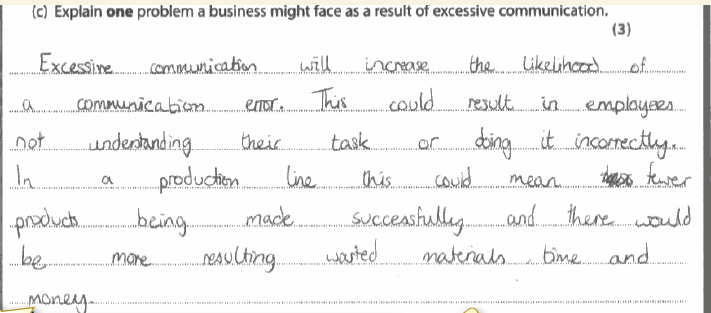 (c) Explain one problem a business might face as a result of excessive communication.
(3)
Excessive communication will increase the likelihood of
a communication error. This could result in employees
not understanding their task or doing it incorrectly.
In a production line this could mean fewer
products being made successfully and there would
be more resulting wasted materials, time and
money.